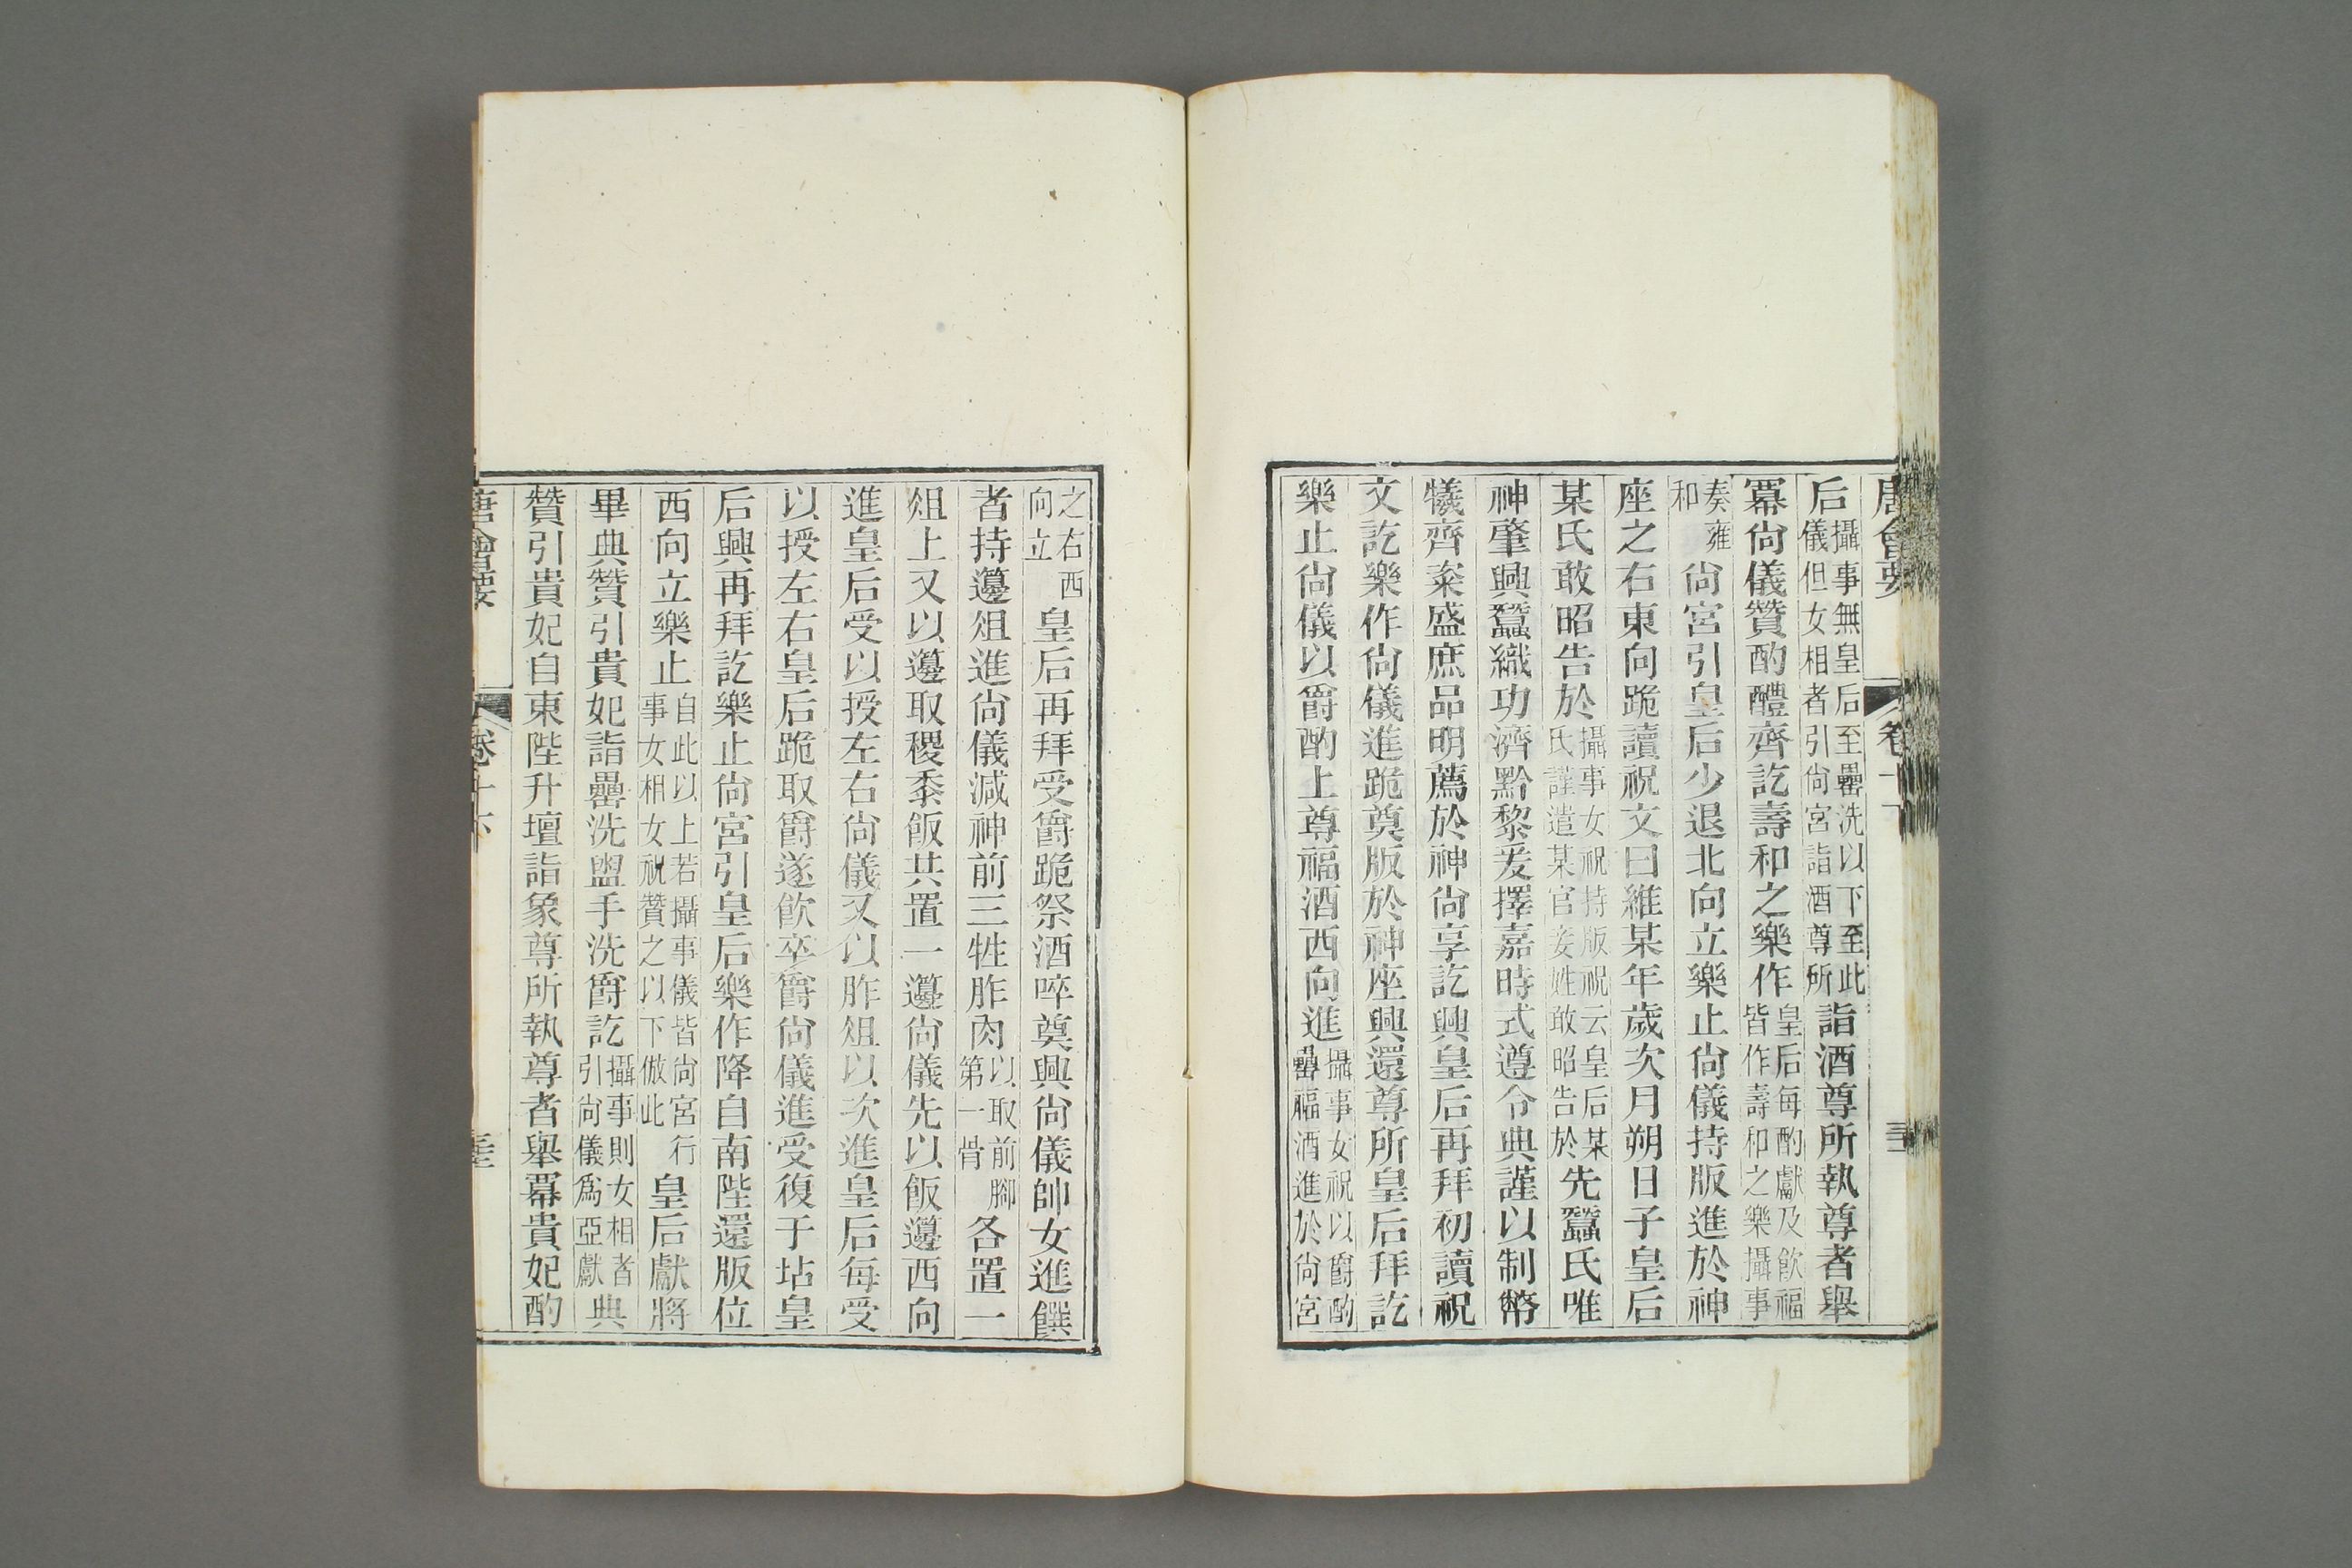 唐會要 卷十下
后攝事無皇后至罍洗以下至此儀但女相者引尙宮詣酒尊所詣酒尊所執尊者舉
冪尙儀贊酌醴齊訖壽和之樂作皇后每酌獻及飮福皆作壽和之樂攝事
奏雍和尙宮引皇后少退北向立樂止尙儀持版進於神
座之右東向跪讀祝文曰維某年歲次月朔日子皇后
某氏敢昭告於攝事女祝持版祝云皇后某氏謹遣某官妾姓敢昭告於先蠶氏唯
神肇興蠶織功濟黔黎爰擇嘉時式遵令典謹以制幣
犧齊粢盛庶品明薦於神尙享訖興皇后再拜初讀祝
文訖樂作尙儀進跪奠版於神座興還尊所皇后拜訖
樂止尙儀以爵酌上尊福酒西向進攝事女祝以爵酌罍福酒進於尙宮
之右西向立皇后再拜受爵跪祭酒啐奠興尙儀帥女進饌
者持籩俎進尙儀減神前三牲胙肉以取前腳第一骨各置一
俎上又以籩取稷黍飯共置一籩尙儀先以飯籩西向
進皇后受以授左右尙儀又以胙俎以次進皇后每受
以授左右皇后跪取爵遂飮卒爵尙儀進受復于坫皇
后興再拜訖樂止尙宮引皇后樂作降自南陛還版位
西向立樂止自此以上若攝事儀皆尙宮行事女相女祝贊之以下倣此皇后獻將
畢典贊引貴妃詣罍洗盥手洗爵訖攝事則女相者引尙儀爲亞獻典
贊引貴妃自東陛升壇詣象尊所執尊者舉冪貴妃酌
唐會要 卷十下